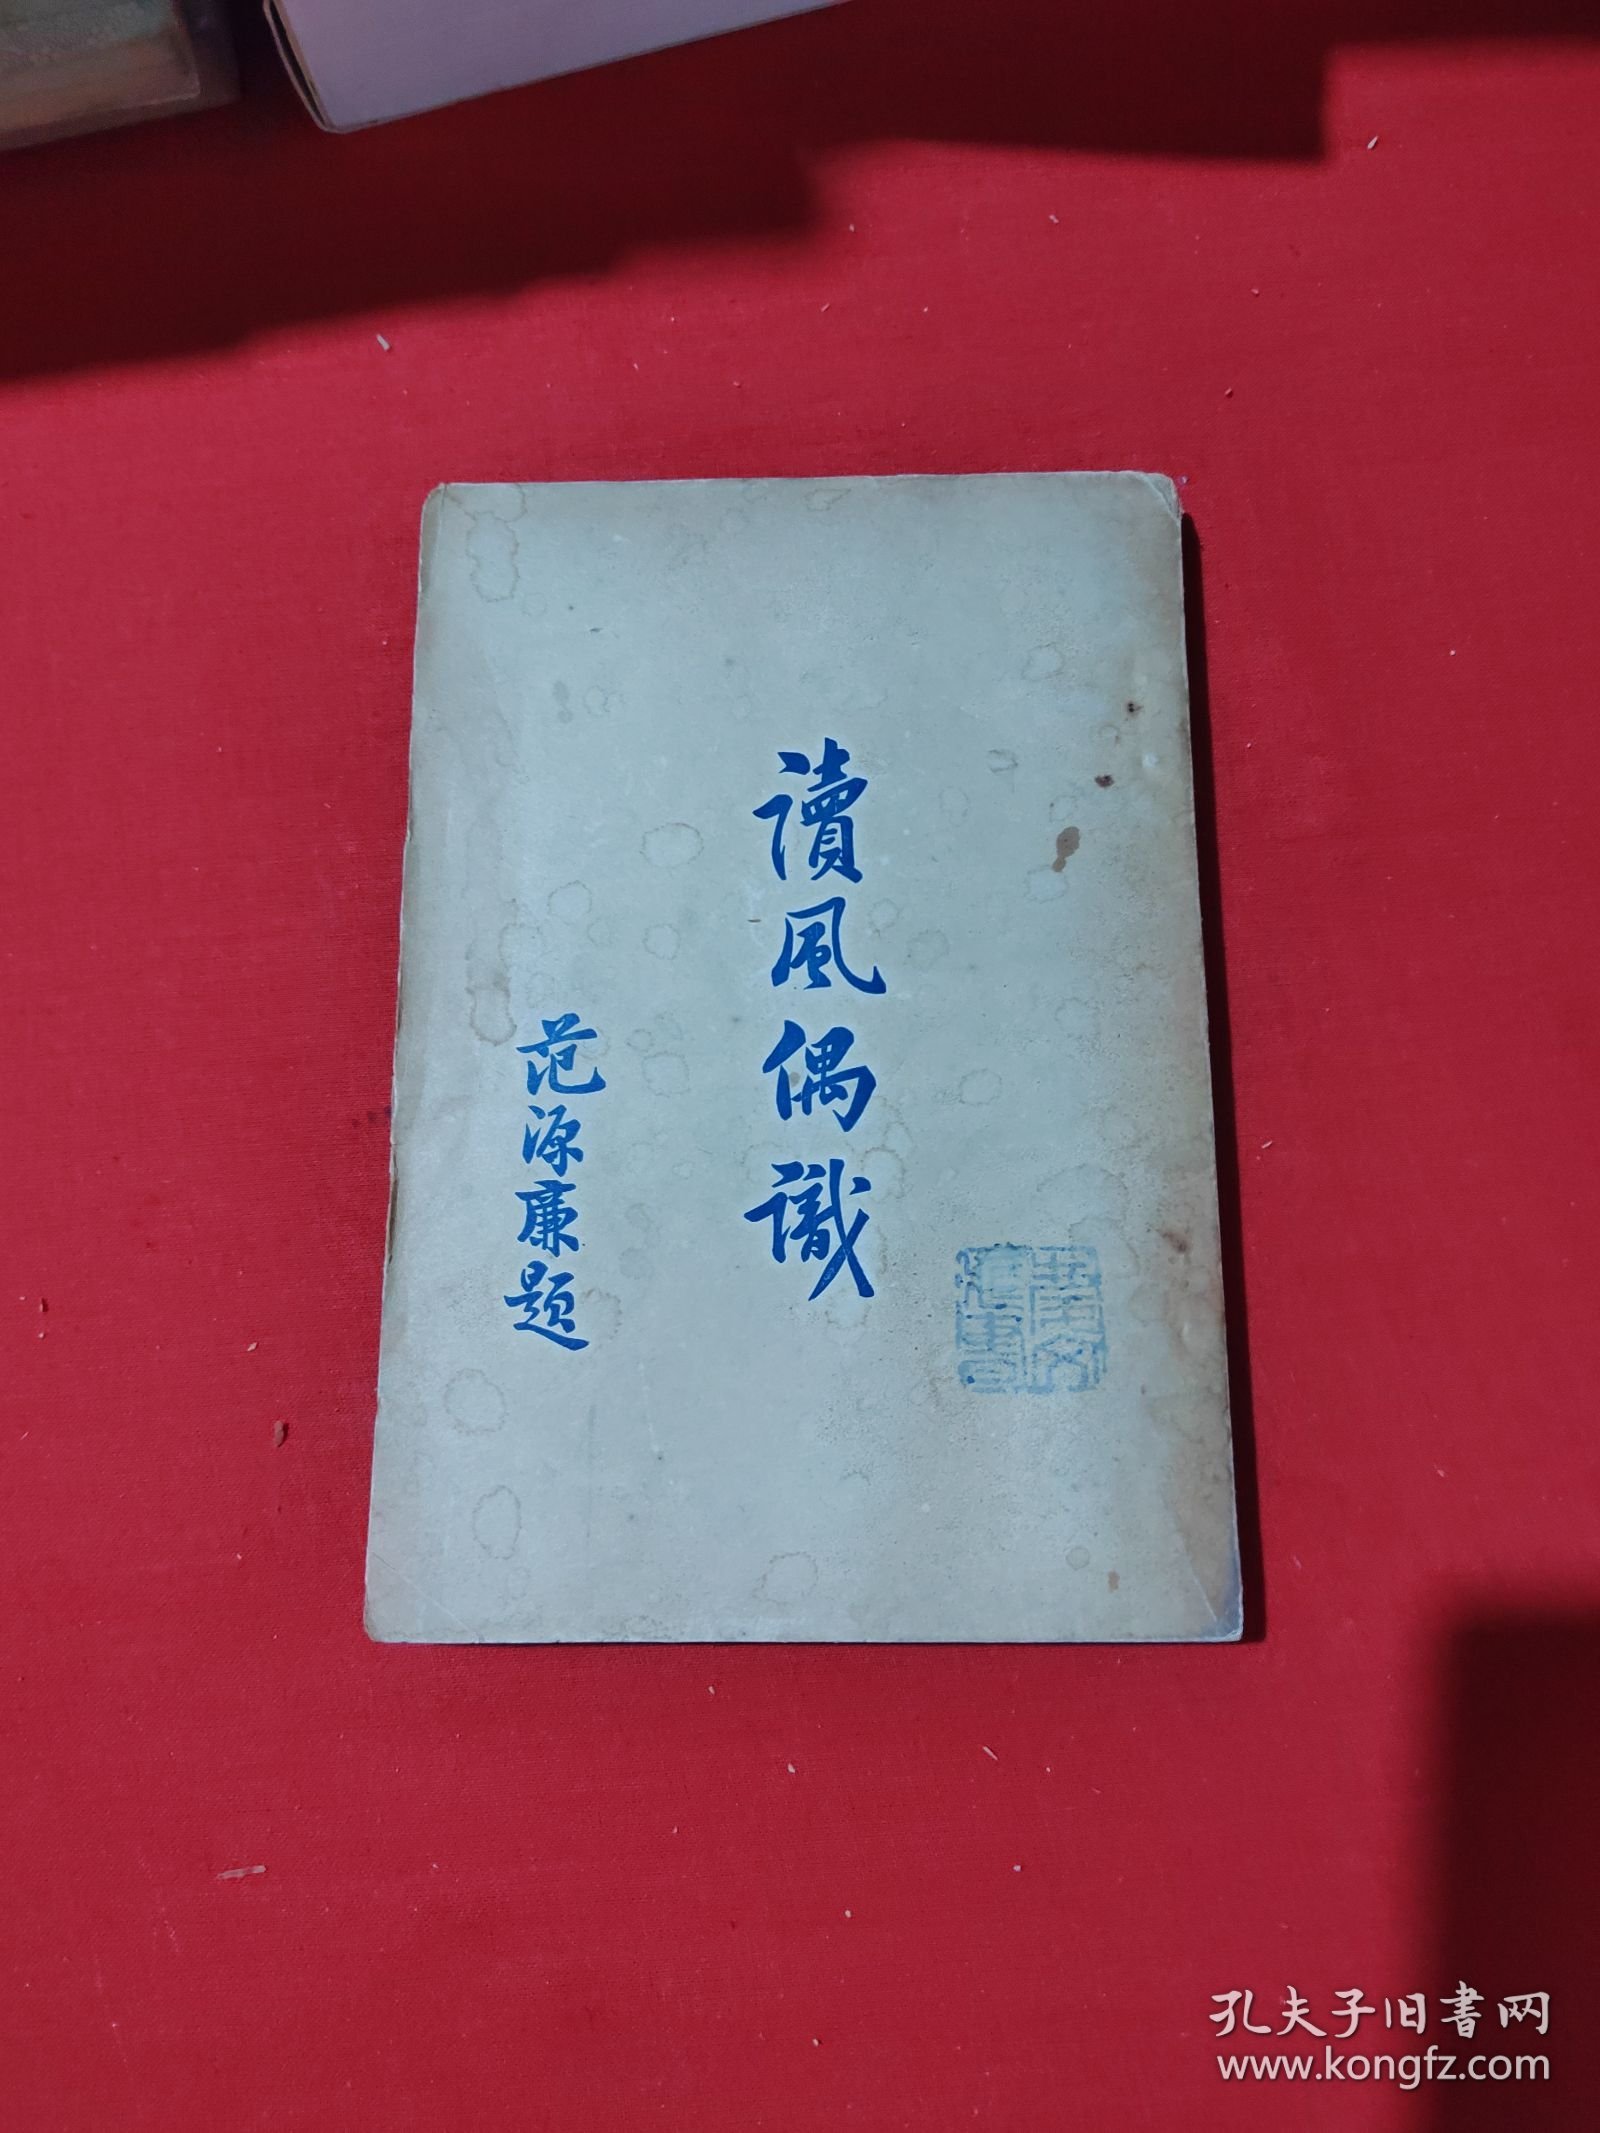 讀風偶識
范源廉題
孔夫子旧書网
www.kongfz.com